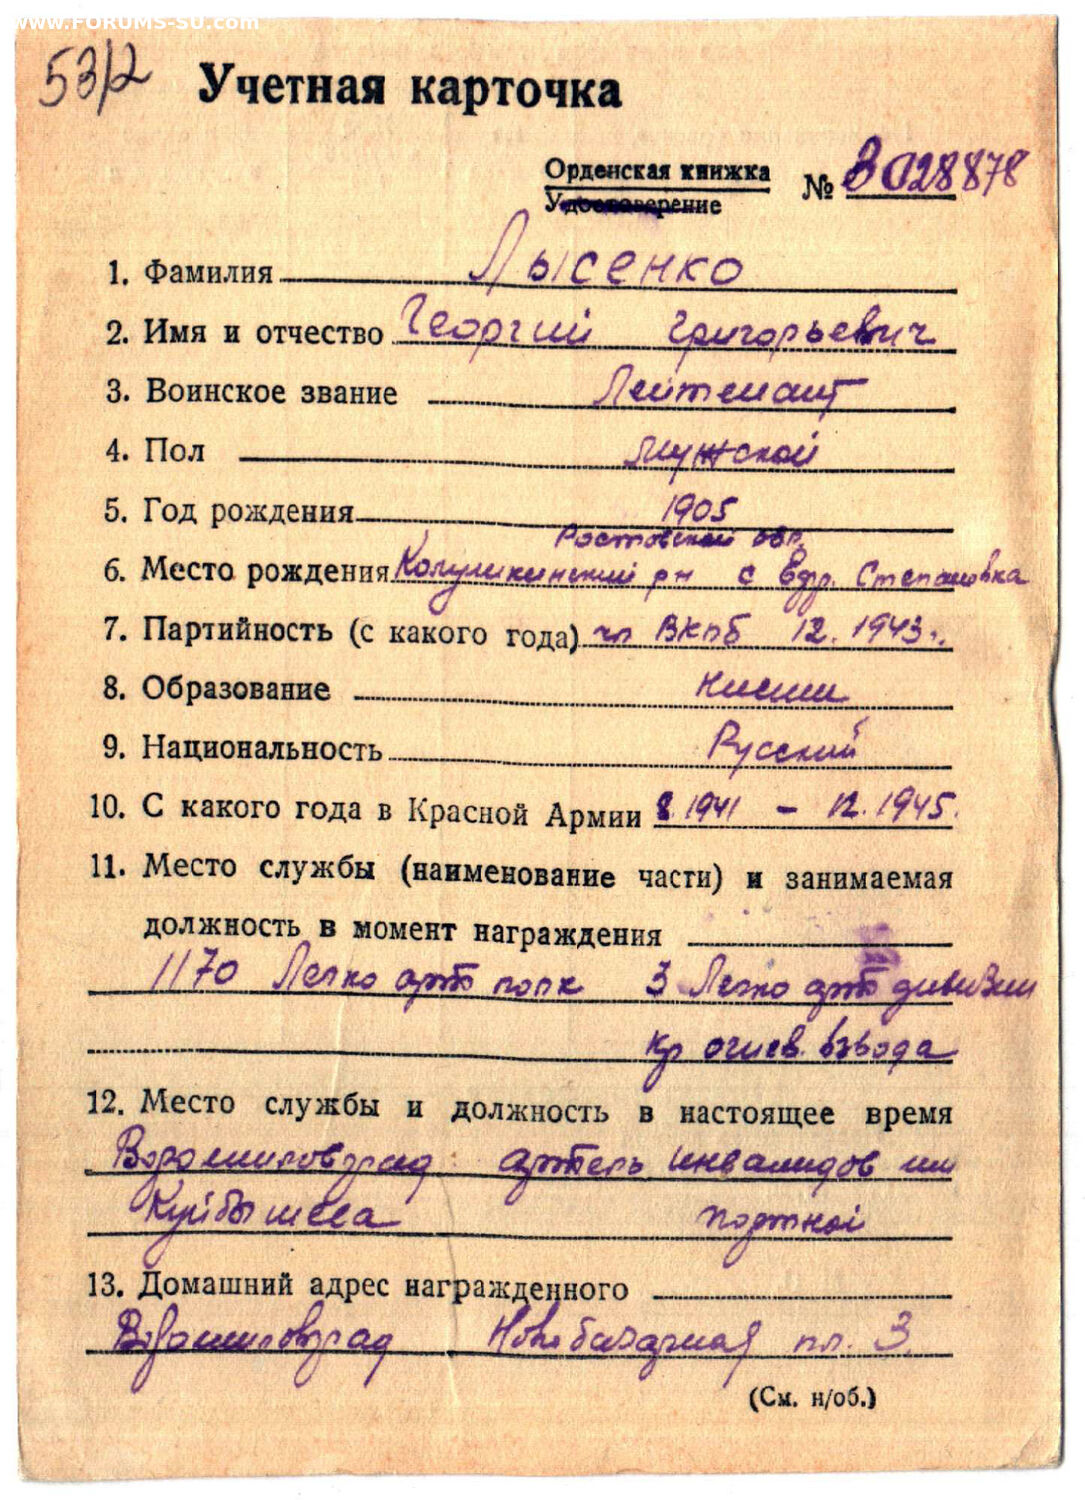 www.FORUMS-SU.com
53/2
Учетная карточка
Орденская книжка
Удостоверение
№ З 028878
1. Фамилия Лысенко
2. Имя и отчество Георгий Григорьевич
3. Воинское звание Лейтенант
4. Пол мужской
5. Год рождения 1905
Ростовской обл.
6. Место рождения Колушкинский рн с Ефр. Степановка
7. Партийность (с какого года) чл ВКПб 12. 1943 г.
8. Образование низшее
9. Национальность Русский
10. С какого года в Красной Армии 8. 1941 – 12. 1945.
11. Место службы (наименование части) и занимаемая
должность в момент награждения
1170 Легко арт полк 3 Легко арт дивизии
кр огнев. взвода
12. Место службы и должность в настоящее время
Ворошиловград артель инвалидов им
Куйбышева портной
13. Домашний адрес награжденного
Ворошиловград Новобазарная пл. 3
(См. н/об.)